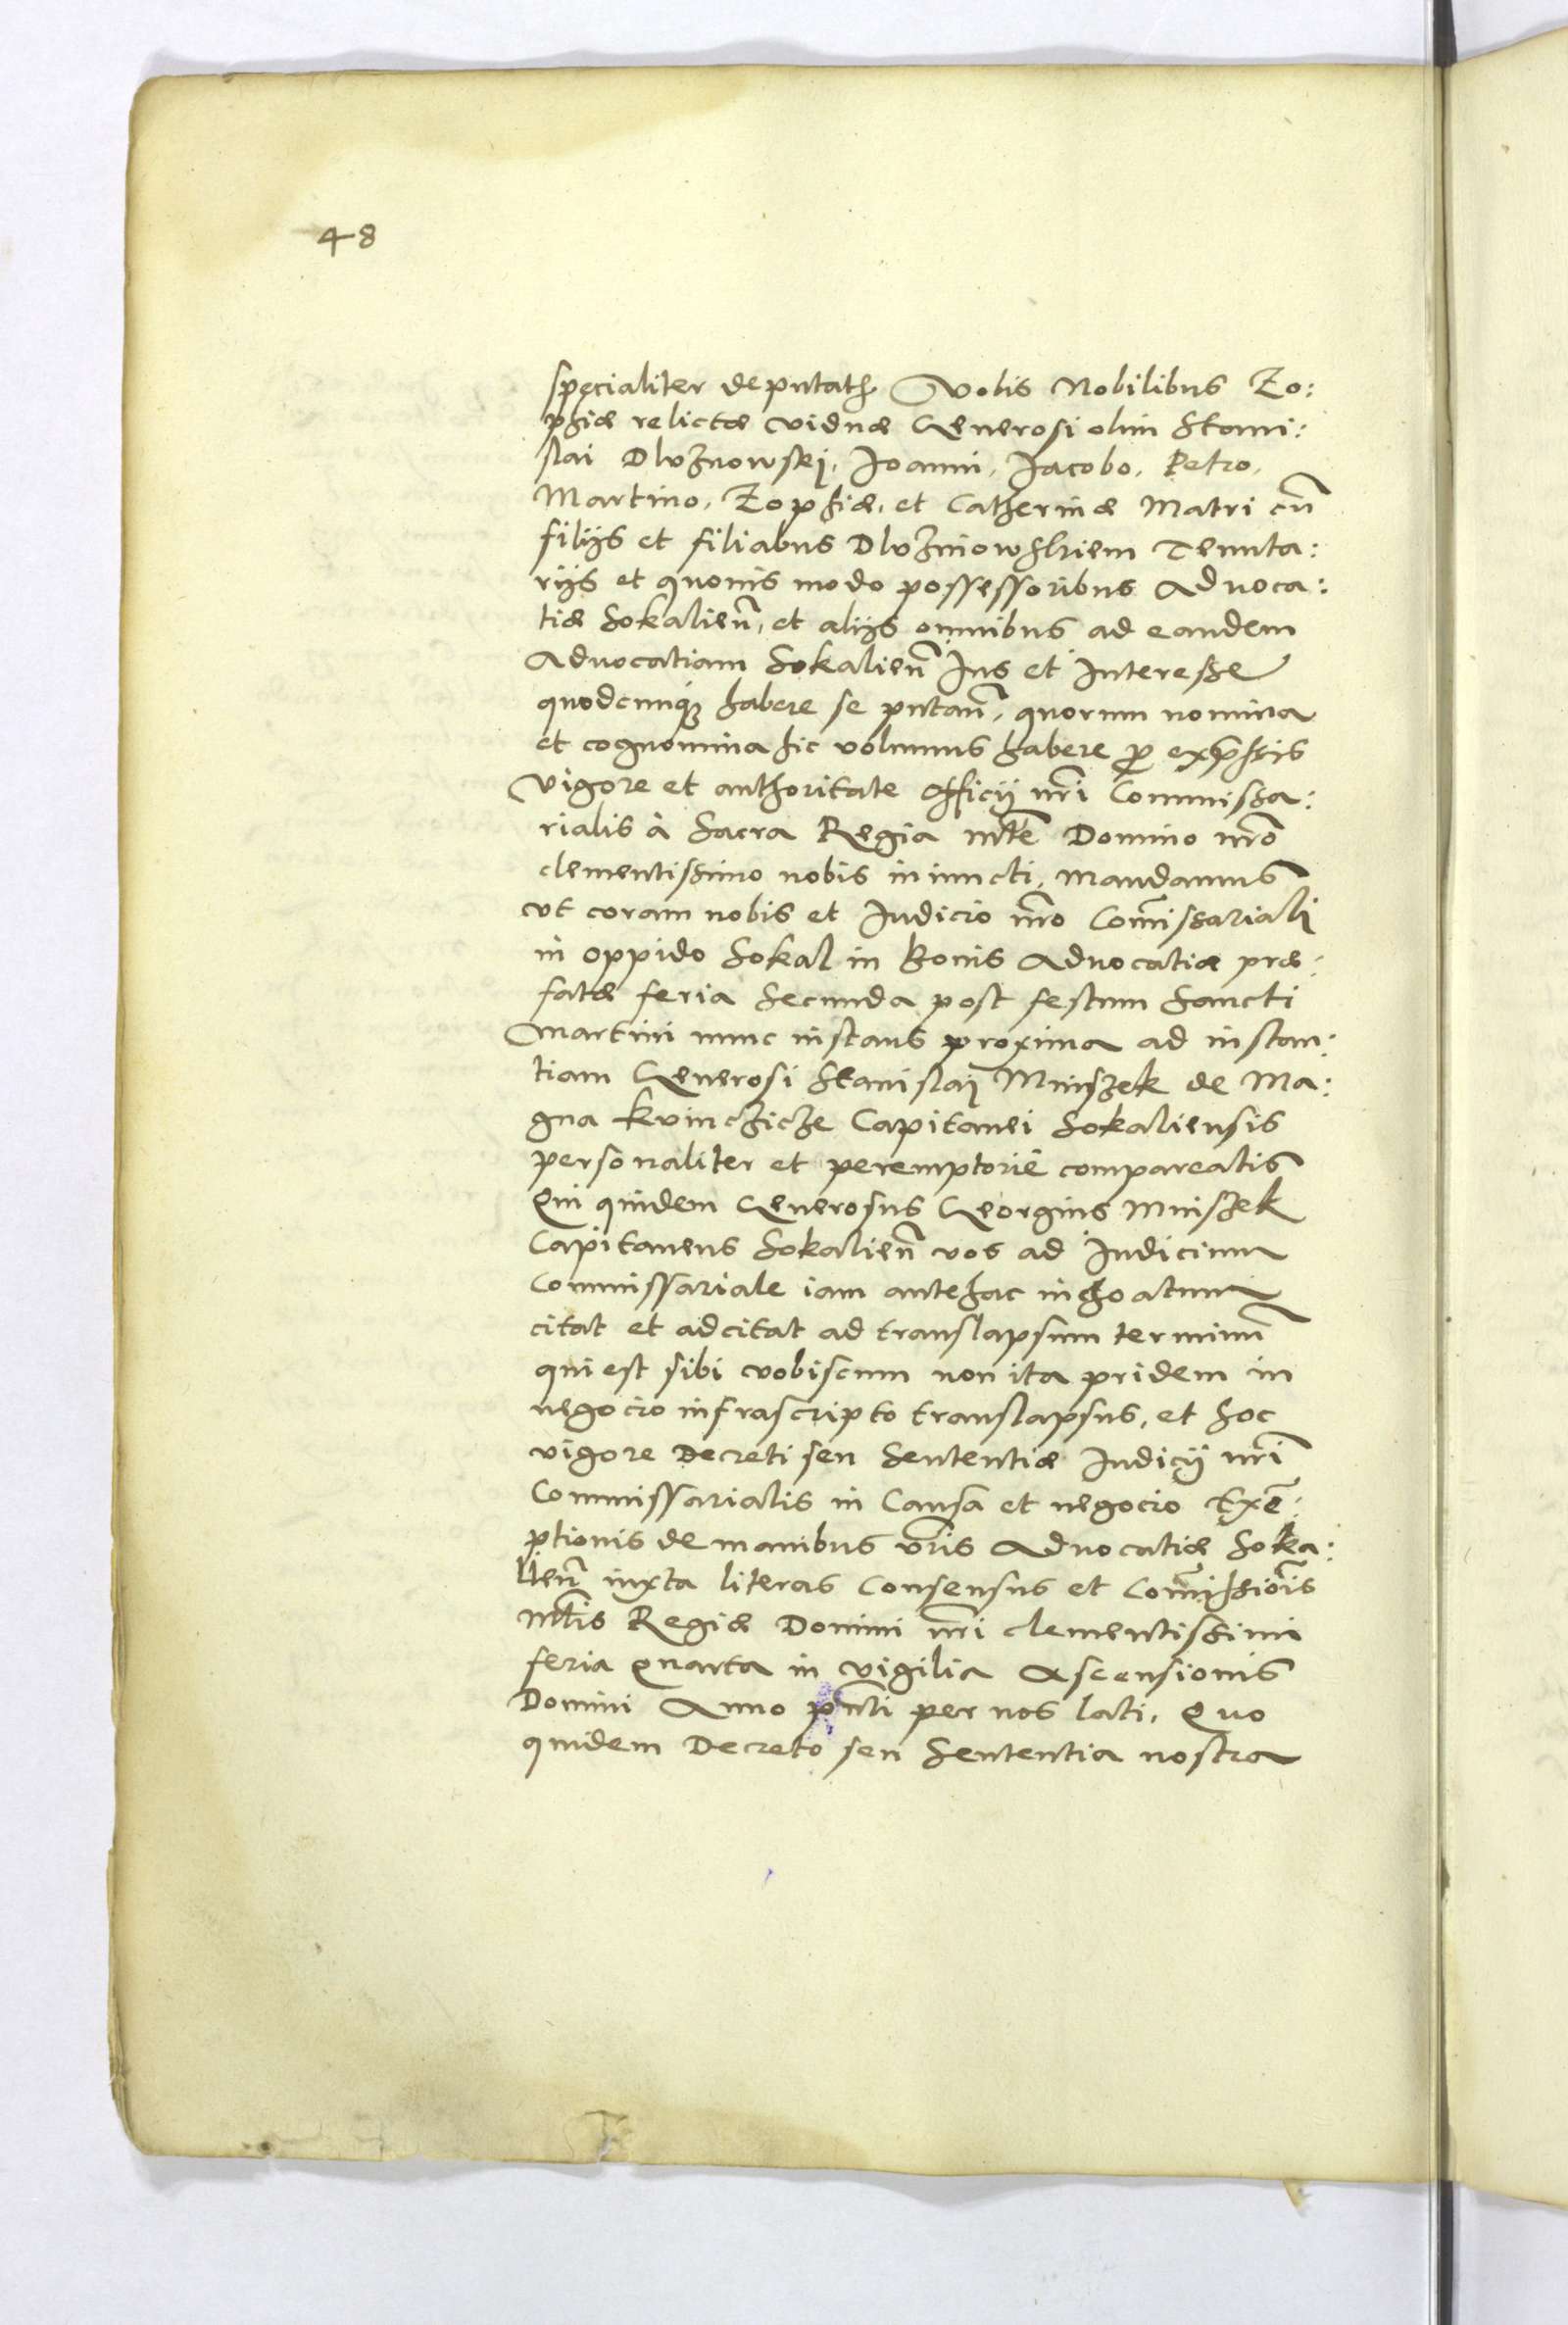 48
specialiter deputatẜ Vobis Nobilibus Zo:
phiæ relictæ viduæ Generosi olim Stani:
slai Dluznowskij, Joanni, Jacobo, Petro,
Martino, Zophiæ, et Catherinæ Matri cũ
filijs et filiabus Dluzniowskiem Tenuta:
rijs et quouis modo possessoribus Aduoca:
tiæ Sokalieñ, et alijs omnibus ad eandem
Aduocatiam Sokalieñ Jus et Interesse
quodcunq3 habere se putañ, quorum nomina
et cognomina hic volumus habere ꝓ exp̃ssis
Vigore et authoritate officij nr̃i Commissa:
rialis à Sacra Regia Mtẽ Domino nr̃o
clementissimo nobis iniuncti, mandamus
vt coram nobis et Iudicio nr̃o Com̃issariali
in oppido Sokal in bonis Aduocatiæ præ:
fatæ feria Secunda post festum Sancti
Martini nunc instans proxima ad instan:
tiam Generosi Stanislaij Mniszek de Ma:
gna Kunczicze Capitanei Sokaliensis
personaliter et peremptoriè compareatis
Qui quidem Generosus Georgius Mniszek
Capitaneus Sokalieñ vos ad Iudicium
Commissariale iam antehac inchoatum
citat et adcitat ad translapsum terminũ
qui est sibi vobiscum non ita pridem in
negocio infrascripto translapsus, et hoc
vigore Decreti seu Sententiæ Iudicij nr̃i
Commissarialis in Causa et negocio Exẽ:
ptionis de manibus vr̃is Aduocatiæ Soka:
lieñ iuxta literas Consensus et Com̃issiõis
Mtis̃ Regiæ Domini nr̃i clementissimi
feria Quarta in vigilia Ascensionis
Domini Anno pñti per nos lati, Quo
quidem Decreto seu Sententia nostra